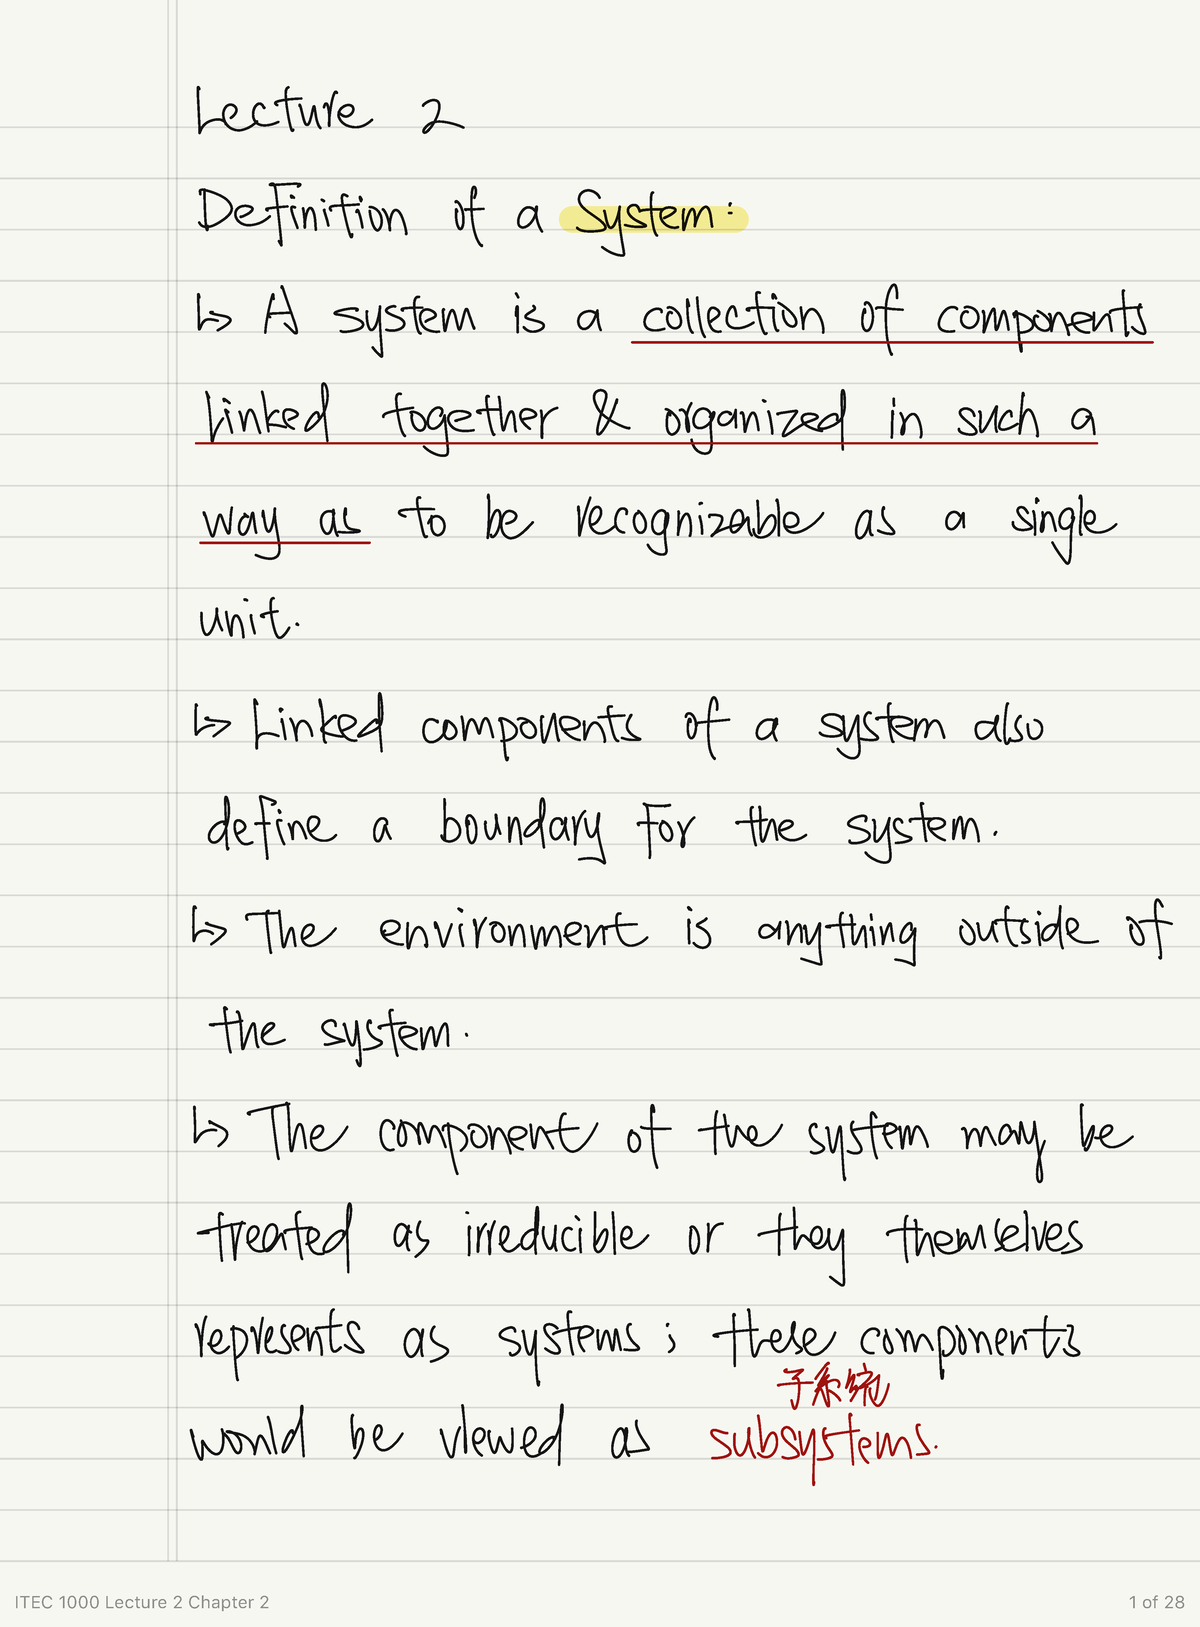 Lecture 2
Definition of a System:
↳ A system is a collection of components
linked together & organized in such a
way as to be recognizable as a single
unit.
↳ Linked components of a system also
define a boundary for the system.
↳ The environment is anything outside of
the system.
↳ The component of the system may be
treated as irreducible or they themselves
represents as systems; these components
子系统
would be viewed as subsystems.
ITEC 1000 Lecture 2 Chapter 2
1 of 28